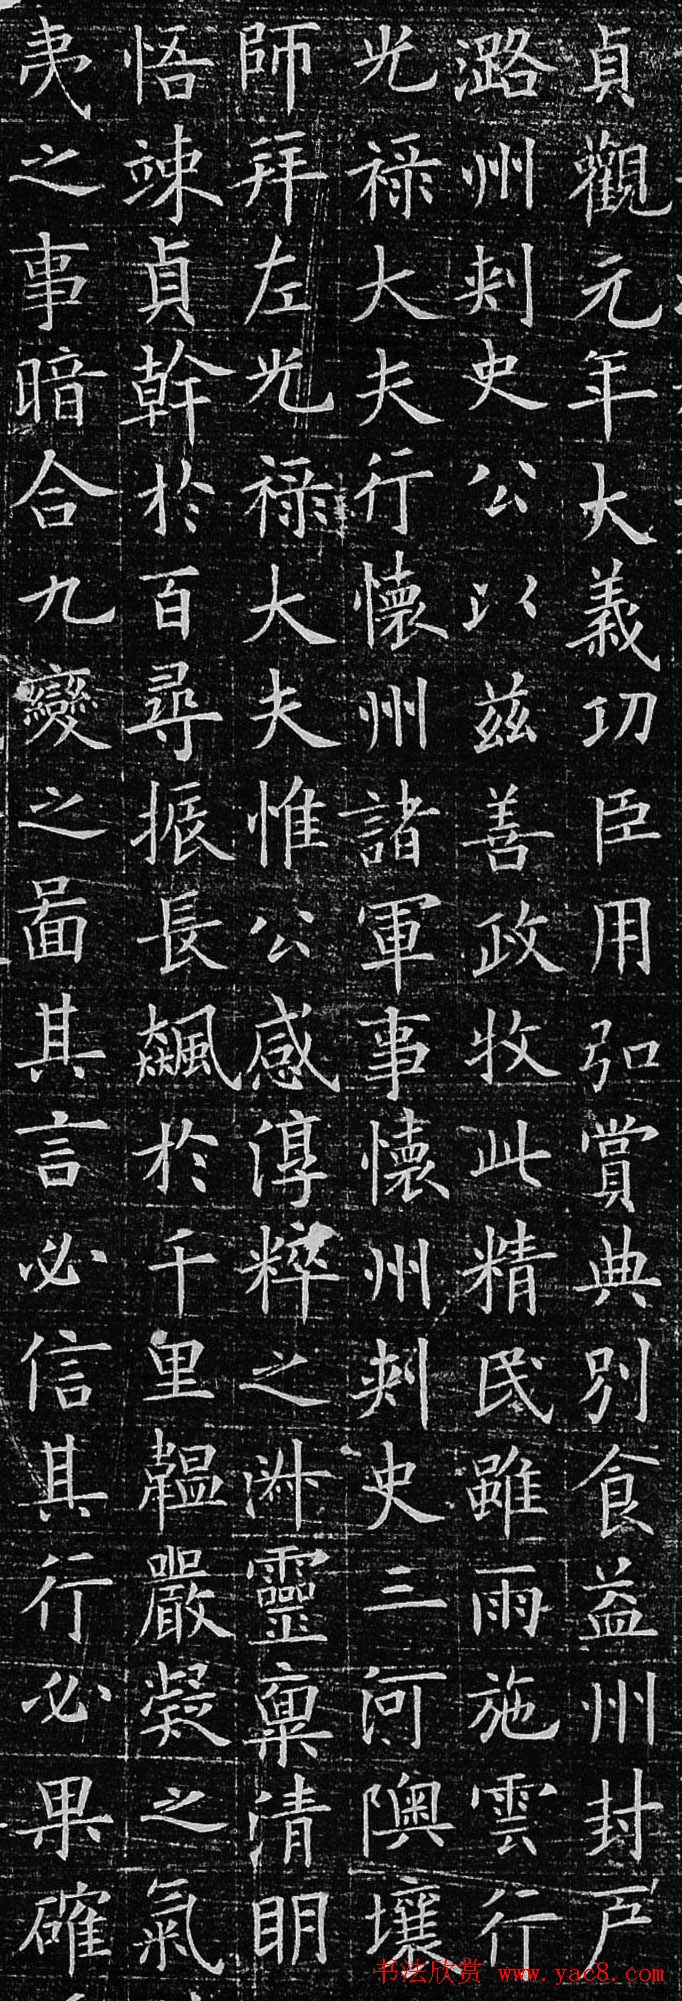 貞觀元年大義功臣用弘賞典別食益州封戶
潞州刺史公以茲善政牧此精民雖雨施雲行
光祿大夫行懷州諸軍事懷州刺史三河隩壤
師拜左光祿大夫惟公感淳粹之淋靈稟清明
悟竦貞幹於百尋振長飆於千里韞嚴凝之氣
夷之事暗合九變之圖其言必信其行必果確
书法欣赏 www.yac8.com